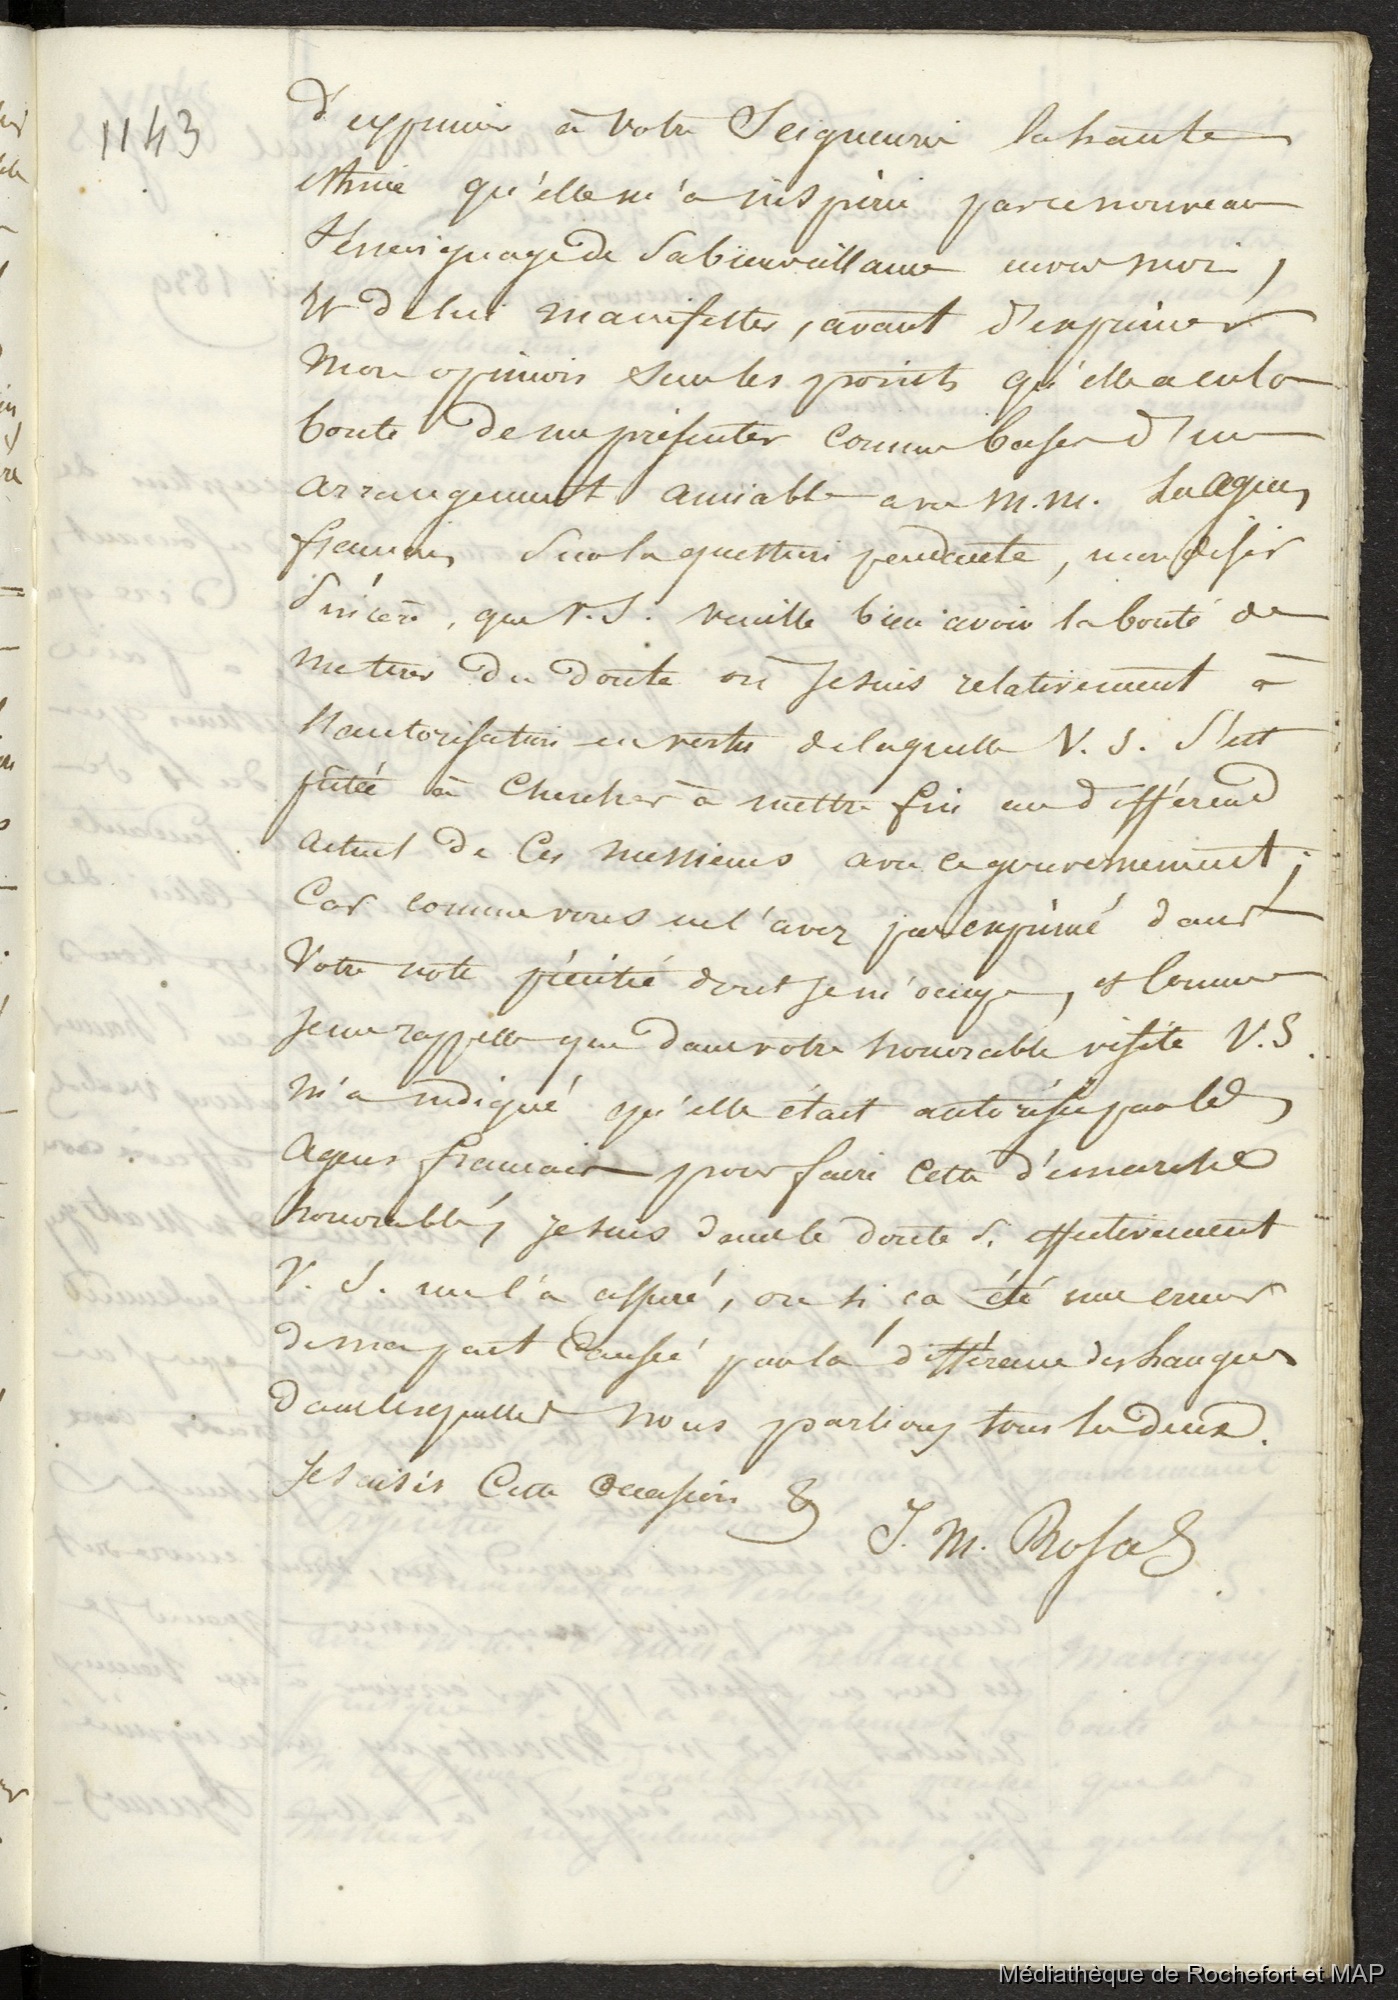 1143
d'exprimer à votre Seigneurie la haute
estime qu'elle m'a inspirée par ce nouveau
témoignage de sa bienveillance envers moi,
et de lui manifester, avant d'exprimer
mon opinion sur les points qu'elle a eu la
bonté de me présenter comme bases d'un
arrangement amiable avec M.M. les agens
français sur la question pendante, mon désir
sincère, que V.S. veuille bien avoir la bonté de
me tirer du doute où je suis relativement à
l'autorisation en vertu de laquelle V. S. s'est
prêtée à chercher à mettre fin au différend
actuel de ces messieurs avec ce gouvernement;
car comme vous ne l'avez pas exprimé dans
votre note précitée dont je m'occupe, et comme
je me rappelle que dans votre honorable visite V.S.
m'a indiqué qu'elle était autorisée par les
agens français pour faire cette démarche
honorable, je suis dans le doute si effectivement
V. S. me l'a assuré, ou si ça été une erreur
de ma part causée par la différence des langues
dans lesquelles nous parlions tous les deux.
Je saisis cette occasion &
J. M. Rosas.
Médiathèque de Rochefort et MAP